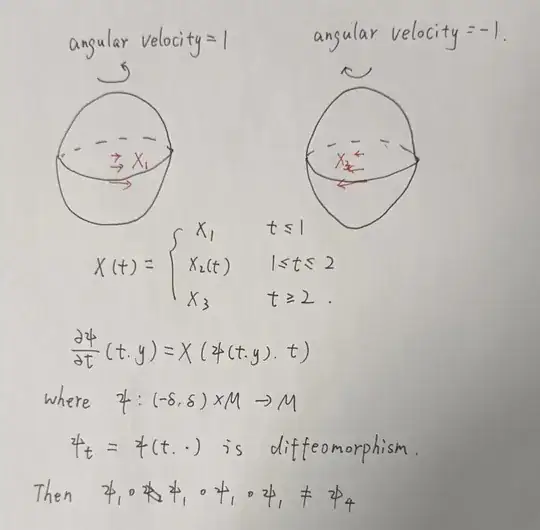 angular velocity = 1
angular velocity = -1.
X₁
X₃
X(t) = { X₁ t ≤ 1
X₂(t) 1 ≤ t ≤ 2
X₃ t ≥ 2 .
∂ψ/∂t (t.y) = X (ψ(t.y). t)
where ψ : (-δ.δ) × M → M
ψₜ = ψ(t. ·) is diffeomorphism.
Then ψ₁ ∘ ψ₁ ∘ ψ₁ ∘ ψ₁ ≠ ψ₄